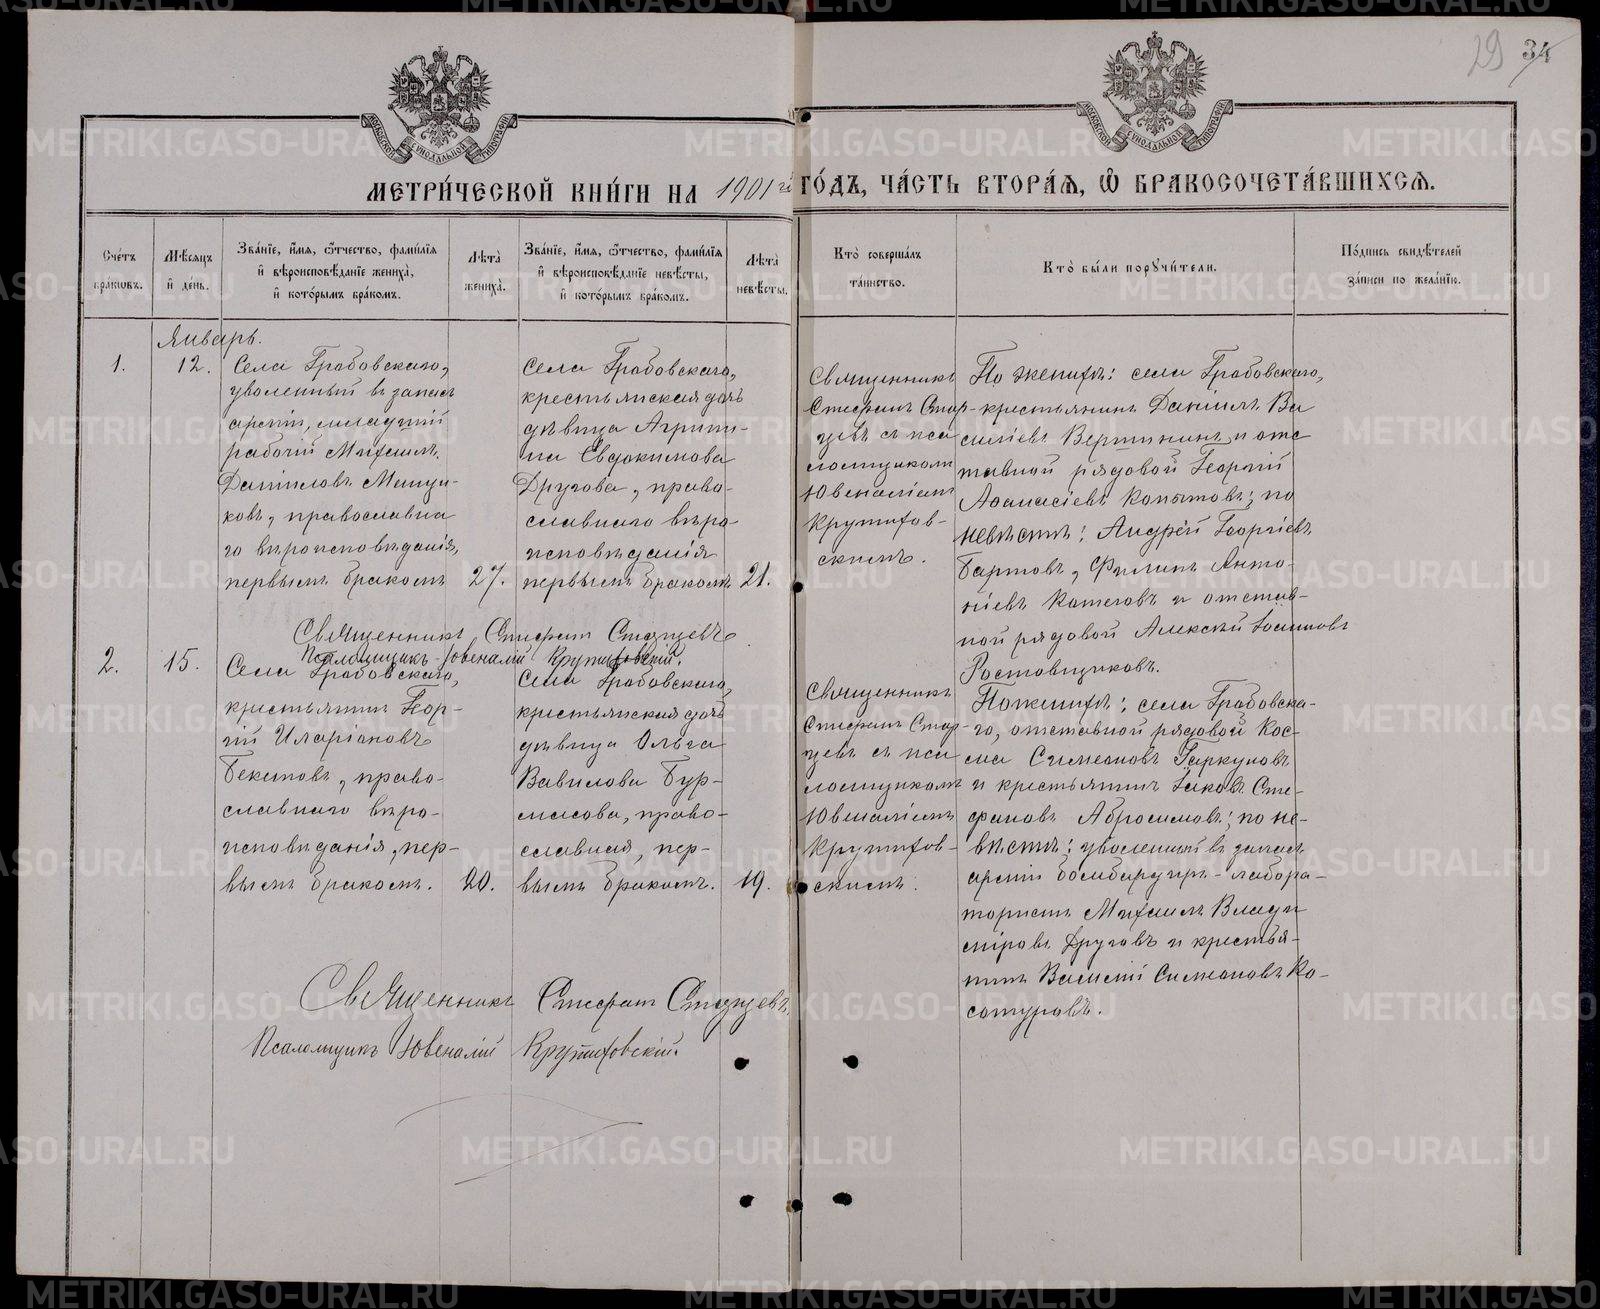 29 34
МЕТРИ́ЧЕСКОЙ КНИ́ГИ НА 1901й ГО́ДЪ, ЧА́СТЬ ВТОРА́Я, Ѿ БРАКОСОЧЕТА́ВШИХСЯ.
Сче́тъ бра́кѡвъ.
Мѣ́сяцъ и҆ де́нь.
Зва́нїе, и҆́мя, ѻ҆́тчество, фами́лїя и҆ вѣроисповѣ́данїе жениха̀, и҆ кото́рымъ бра́комъ.
Лѣ́та жениха̀.
Зва́нїе, и҆́мя, ѻ҆́тчество, фами́лїя и҆ вѣроисповѣ́данїе невѣ́сты, и҆ кото́рымъ бра́комъ.
Лѣ́та невѣ́сты.
Кто̀ соверша́лъ та́инство.
Кто̀ бы́ли порꙋчи́тели.
По́дпись свидѣ́телей за́писи по жела́нїю.
Январь.
1.
12.
Села Грабовскаго,
уволенный въ запасъ
арміи, младшій
рабочій Михаилъ
Даниловъ
ковъ, православна
го вѣроисповѣданія,
первымъ бракомъ
27.
Села Грабовскаго,
крестьянская дочь
дѣвица Агрипи-
на Евдокимова
Другова, право-
славнаго вѣро-
исповѣданія
первымъ бракомъ
21.
Священникъ
Стефанъ Стар-
цевъ съ пса
ломщикомъ
Ювеналіемъ
Крутихов-
скимъ.
По женихѣ: села Грабовскаго,
крестьянинъ Даніилъ Ва
силіевъ Вершининъ и отс
тавной рядовой Георгій
Аѳанасіевъ Копытовъ; по
невѣстѣ: Андрей Георгіевъ
Бартовъ, Филипъ Анто-
ніевъ Котеговъ и отстав-
ной рядовой Алексій Іоанновъ
Ростовщиковъ.
Священникъ Стефанъ Старцевъ
Псаломщикъ Ювеналій Крутиховскій.
2.
15.
Села Грабовскаго,
крестьянинъ Геор-
гій Иларіоновъ
Бекетовъ, право-
славнаго вѣро-
исповѣданія, пер-
вымъ бракомъ.
20.
Села Грабовскаго,
крестьянская дочь
дѣвица Ольга
Вавилова Бур-
масова, право-
славная, пер-
вымъ бракомъ.
19.
Священникъ
Стефанъ Стар-
цевъ съ пса
ломщикомъ
Ювеналіемъ
Крутихов-
скимъ.
По женихѣ: села Грабовска-
го, отставной рядовой Кос-
ма Симеоновъ Гаркуновъ
и крестьянинъ Іаковъ Сте-
фановъ Абросимовъ; по не-
вѣстѣ: уволенный въ запасъ
арміи бомбардиръ-лабора-
тористъ Михаилъ Влади
міровъ Друговъ и крестья-
нинъ Василій Симеоновъ Ко-
сотуровъ.
Священникъ Стефанъ Старцевъ
Псаломщикъ Ювеналій Крутиховскій.